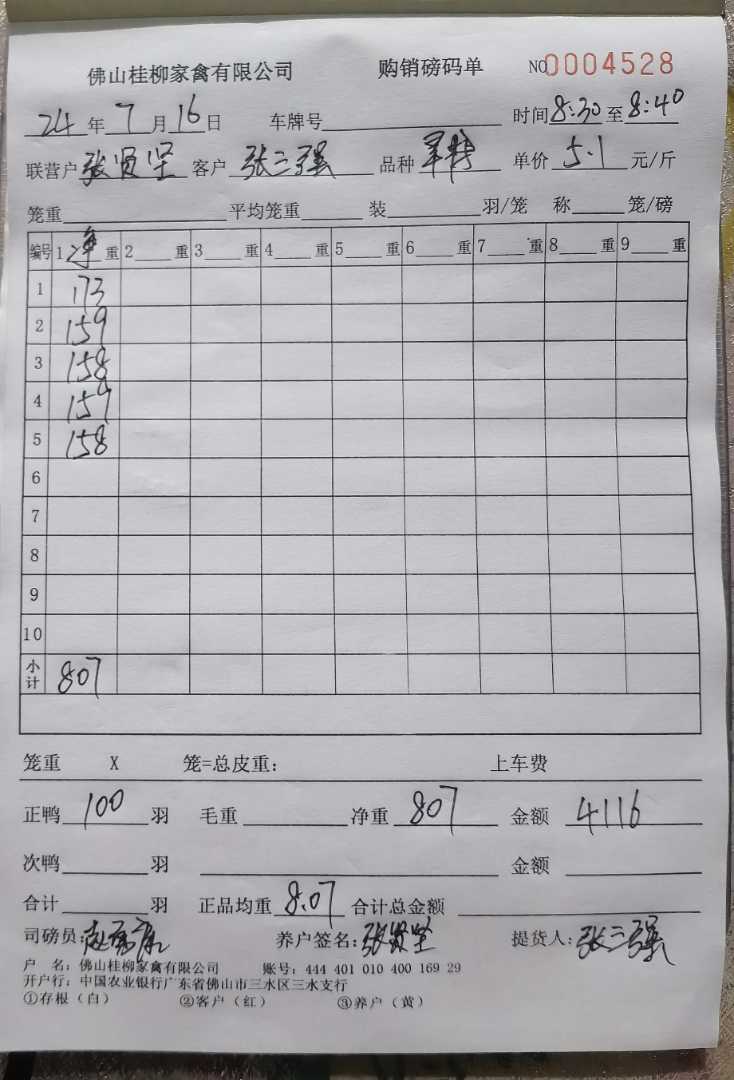 佛山桂柳家禽有限公司 购销磅码单 NO0004528
24年7月16日 车牌号 时间8:30至8:40
联营户张贤坚 客户张三强 品种 单价5.1元/斤
笼重 平均笼重 装 羽/笼 称 笼/磅
编号 1净重 2 重 3 重 4 重 5 重 6 重 7 重 8 重 9 重
1 173
2 159
3 158
4 159
5 158
6
7
8
9
10
小计 807
笼重 X 笼=总皮重: 上车费
正鸭100羽 毛重 净重807 金额4116
次鸭 羽 金额
合计 羽 正品均重8.07 合计总金额
司磅员: 养户签名:张贤坚 提货人:张三强
户 名: 佛山桂柳家禽有限公司 账号: 444 401 010 400 169 29
开户行: 中国农业银行广东省佛山市三水区三水支行
①存根（白） ②客户（红） ③养户（黄）